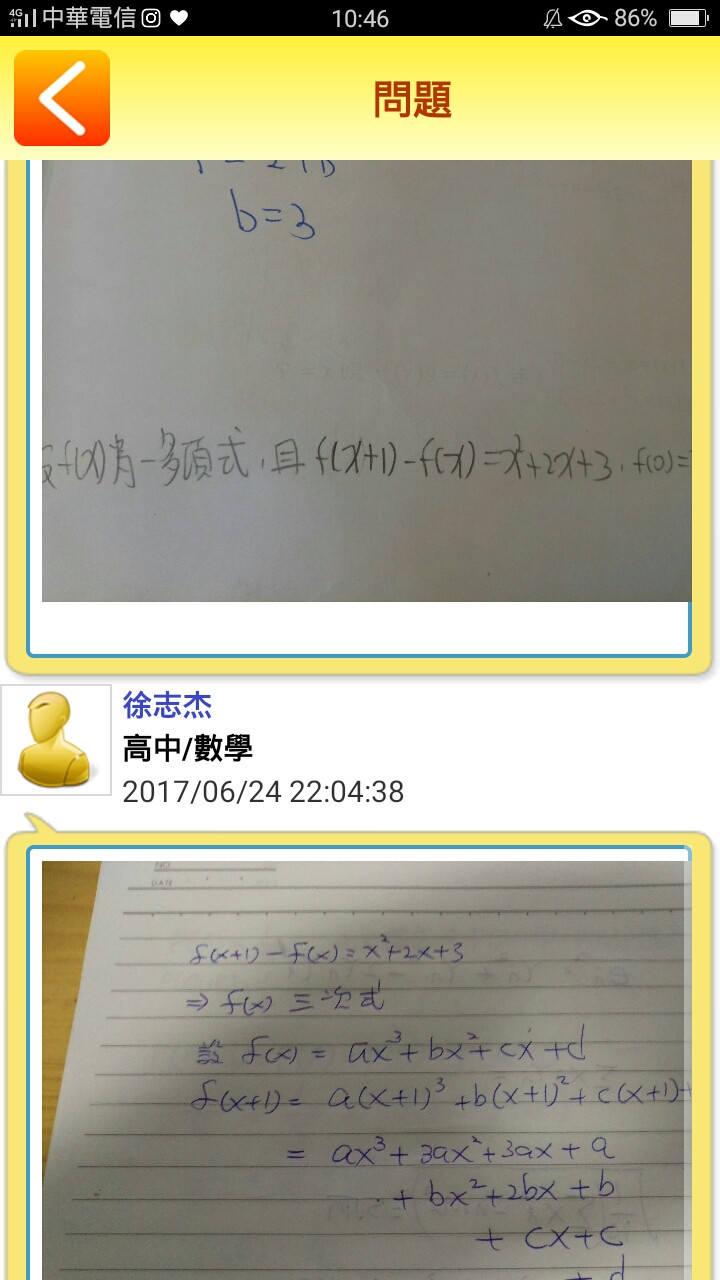 4G 中華電信 10:46 86%
問題
b=3
f(x)為一多項式，且 f(x+1)-f(x)=x²+2x+3，f(0)=
徐志杰
高中/數學
2017/06/24 22:04:38
NO.
DATE
f(x+1)-f(x)=x²+2x+3
⇒ f(x) 三次式
設 f(x) = ax³+bx²+cx+d
f(x+1) = a(x+1)³+b(x+1)²+c(x+1)+
= ax³+3ax²+3ax+a
+bx²+2bx+b
+cx+c
+d